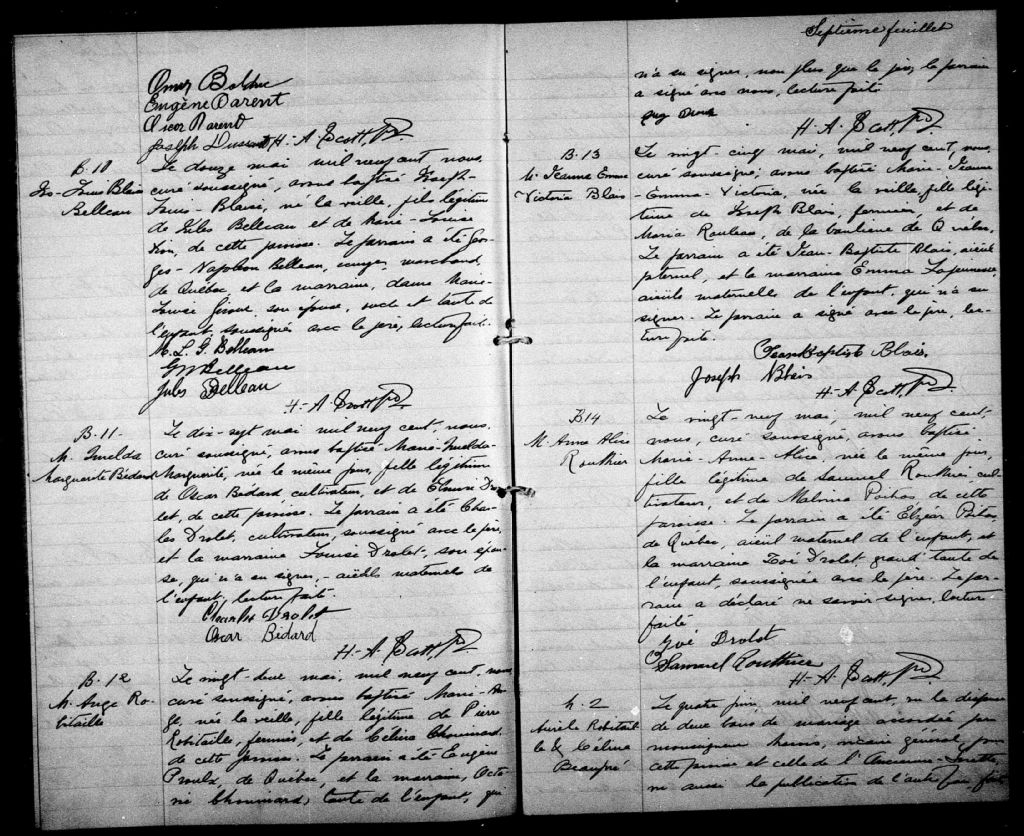 Omer Bolduc
Eugène Parent
Oscar Parent
Joseph H.-A. Scott, Ptre
B-10
Jos-Louis Blaise
Belleau
Le douze mai mil neuf cent, nous,
curé soussigné, avons baptisé Joseph-
Louis-Blaise, né la veille, fils légitime
de Jules Belleau et de Marie-Louise
de cette paroisse. Le parrain a été Geor-
ges-Napoléon Belleau, marchand,
de Québec, et la marraine, dame Marie-
Louise son épouse, oncle et tante de
l'enfant, soussignés avec le père, lecture faite.
M. L. G. Belleau
GN Belleau
Jules Belleau
H.-A. Scott, Ptre
B-11-
M. Imelda
Marguerite Bédard
Le dix-sept mai mil neuf cent, nous,
curé soussigné, avons baptisé Marie-Imelda-
Marguerite, née le même jour, fille légitime
de Oscar Bédard, cultivateur, et de Dro-
let, de cette paroisse. Le parrain a été Char-
les Drolet, cultivateur, soussigné avec le père,
et la marraine Louise Drolet, son épou-
se, qui n'a su signer, - aïeuls maternels de
l'enfant, lecture faite.
Charles Drolet
Oscar Bédard
H.-A. Scott, Ptre
B-12
M. Ange Ro-
bitaille
Le vingt-deux mai, mil neuf cent, nous
curé soussigné, avons baptisé Marie-An-
ge, née la veille, fille légitime de Pierre
Robitaille, fermier, et de Célina Chouinard
de cette paroisse. Le parrain a été Eugène
Proulx, de Québec, et la marraine, Octa-
vie Chouinard, tante de l'enfant, qui
Septième feuillet
n'a su signer, non plus que le père, le parrain
a signé avec nous, lecture faite
H.-A. Scott, Ptre
B-13
M. Jeanne Emma
Victoria Blais
Le vingt-cinq mai, mil neuf cent, nous,
curé soussigné, avons baptisé Marie-Jeanne
-Emma-Victoria, née la veille, fille légi-
time de Joseph Blais, fermier, et de
Maria Rouleau, de la banlieue de Québec.
Le parrain a été Jean-Baptiste Blais, aïeul
paternel, et la marraine Emma Lajeunesse,
aïeule maternelle de l'enfant, qui n'a su
signer. Le parrain a signé avec le père, lec-
ture faite.
Jean Baptiste Blais,
Joseph Blais
H.-A. Scott, Ptre
B14
M. Anne Alice
Routhier
Le vingt-neuf mai, mil neuf cent,
nous, curé soussigné, avons baptisé
Marie-Anne-Alice, née le même jour,
fille légitime de Samuel Routhier, cul-
tivateur, et de Malvina Poitras de cette
paroisse. Le parrain a été Elzéar Poitras,
de Québec, aïeul maternel de l'enfant, et
la marraine Zoé Drolet, grand'tante de
l'enfant, soussignée avec le père. Le par-
rain a déclaré ne savoir signer, lecture
faite
Zoé Drolet
Samuel Routhier
H.-A. Scott, Ptre
M. 2
Aurèle Robitail-
le & Célina
Beaupré
Le quatre juin, mil neuf cent, vu la dispense
de deux bans de mariage accordée par
monseigneur vicaire général, pour
cette paroisse et celle de l'Ancienne-Lorette,
vu aussi la publication de l'autre ban faite